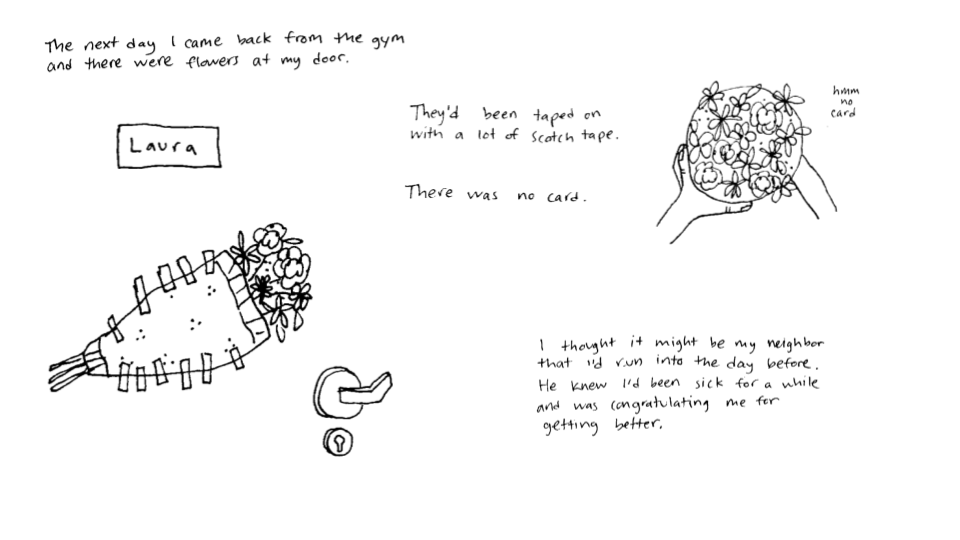 The next day I came back from the gym
and there were flowers at my door.
Laura
They'd been taped on
with a lot of scotch tape.
There was no card.
hmm
no
card
I thought it might be my neighbor
that I'd run into the day before.
He knew I'd been sick for a while
and was congratulating me for
getting better.